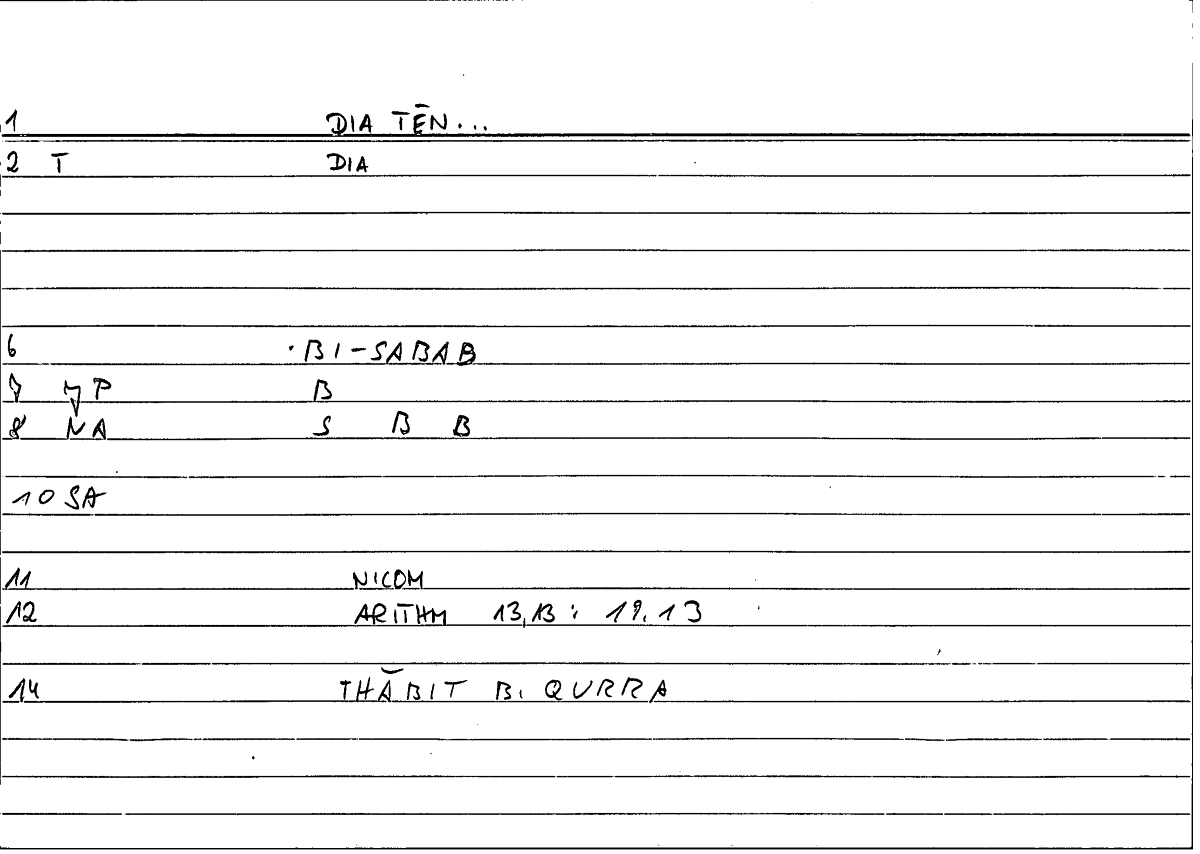 1 DIA TĒN...
2 T DIA
6 ·BI-SABAB
7 P B
8 NA S B B
10 SA
11 NICOM
12 ARITHM 13,13 : 19.13
14 THĀBIT B. QURRA